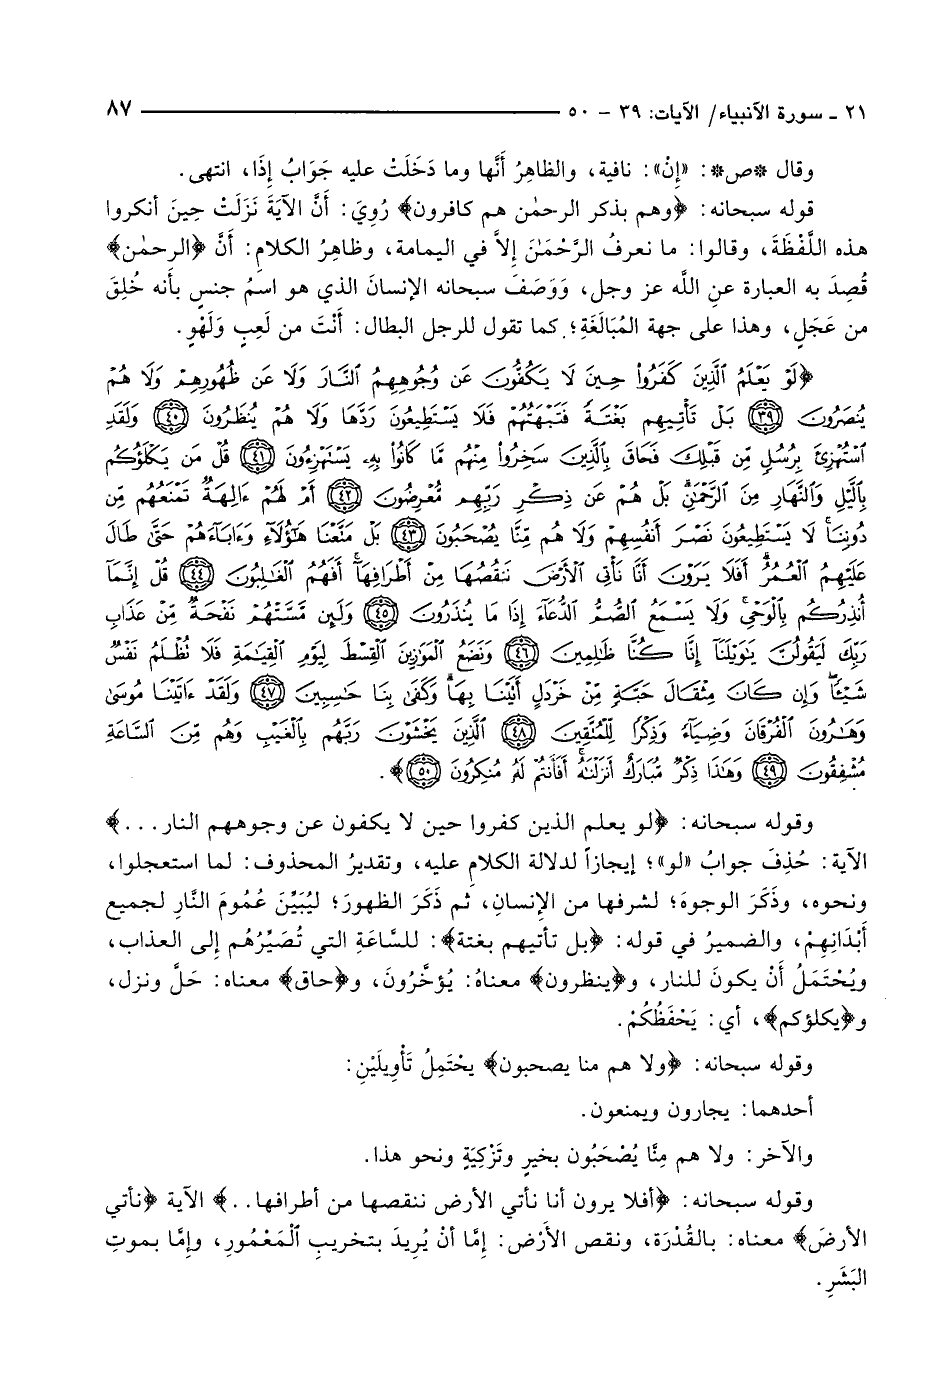 ٢١ ـ سورة الأنبياء/ الآيات: ٣٩ - ٥٠ ٨٧
وقال *ص*: «إِنْ»: نافية، والظاهِرُ أَنَّها وما دَخَلَتْ عليه جَوَابُ إِذَا، انتهى.
قوله سبحانه: ﴿وهم بذكر الرحمٰن هم كافرون﴾ رُوِيَ: أَنَّ الآيَةَ نَزَلَتْ حِينَ أنكروا
هذه اللَّفْظَةَ، وقالوا: ما نعرفُ الرَّحْمَنَ إِلاَّ في اليمامة، وظاهِرُ الكلامِ: أَنَّ ﴿الرحمٰن﴾
قُصِدَ به العبارة عنِ اللَّه عز وجل، وَوَصَفَ سبحانه الإنسانَ الذي هو اسمُ جنسٍ بأنه خُلِقَ
من عَجَلٍ، وهذا على جهة المُبَالَغَةِ؛ كما تقول للرجل البطال: أَنْتَ من لَعِبٍ وَلَهْوٍ.
﴿لَوْ يَعْلَمُ ٱلَّذِينَ كَفَرُوا۟ حِينَ لَا يَكُفُّونَ عَن وُجُوهِهِمُ ٱلنَّارَ وَلَا عَن ظُهُورِهِمْ وَلَا هُمْ
يُنصَرُونَ ٣٩ بَلْ تَأْتِيهِم بَغْتَةً فَتَبْهَتُهُمْ فَلَا يَسْتَطِيعُونَ رَدَّهَا وَلَا هُمْ يُنظَرُونَ ٤٠ وَلَقَدِ
ٱسْتُهْزِئَ بِرُسُلٍ مِّن قَبْلِكَ فَحَاقَ بِٱلَّذِينَ سَخِرُوا۟ مِنْهُم مَّا كَانُوا۟ بِهِۦ يَسْتَهْزِءُونَ ٤١ قُلْ مَن يَكْلَؤُكُم
بِٱلَّيْلِ وَٱلنَّهَارِ مِنَ ٱلرَّحْمَٰنِ بَلْ هُمْ عَن ذِكْرِ رَبِّهِم مُّعْرِضُونَ ٤٢ أَمْ لَهُمْ ءَالِهَةٌ تَمْنَعُهُم مِّن
دُونِنَا لَا يَسْتَطِيعُونَ نَصْرَ أَنفُسِهِمْ وَلَا هُم مِّنَّا يُصْحَبُونَ ٤٣ بَلْ مَتَّعْنَا هَٰٓؤُلَآءِ وَءَابَآءَهُمْ حَتَّىٰ طَالَ
عَلَيْهِمُ ٱلْعُمُرُ أَفَلَا يَرَوْنَ أَنَّا نَأْتِى ٱلْأَرْضَ نَنقُصُهَا مِنْ أَطْرَافِهَآ أَفَهُمُ ٱلْغَٰلِبُونَ ٤٤ قُلْ إِنَّمَآ
أُنذِرُكُم بِٱلْوَحْىِ وَلَا يَسْمَعُ ٱلصُّمُّ ٱلدُّعَآءَ إِذَا مَا يُنذَرُونَ ٤٥ وَلَئِن مَّسَّتْهُمْ نَفْحَةٌ مِّنْ عَذَابِ
رَبِّكَ لَيَقُولُنَّ يَٰوَيْلَنَآ إِنَّا كُنَّا ظَٰلِمِينَ ٤٦ وَنَضَعُ ٱلْمَوَٰزِينَ ٱلْقِسْطَ لِيَوْمِ ٱلْقِيَٰمَةِ فَلَا تُظْلَمُ نَفْسٌ
شَيْـًٔا وَإِن كَانَ مِثْقَالَ حَبَّةٍ مِّنْ خَرْدَلٍ أَتَيْنَا بِهَا وَكَفَىٰ بِنَا حَٰسِبِينَ ٤٧ وَلَقَدْ ءَاتَيْنَا مُوسَىٰ
وَهَٰرُونَ ٱلْفُرْقَانَ وَضِيَآءً وَذِكْرًا لِّلْمُتَّقِينَ ٤٨ ٱلَّذِينَ يَخْشَوْنَ رَبَّهُم بِٱلْغَيْبِ وَهُم مِّنَ ٱلسَّاعَةِ
مُشْفِقُونَ ٤٩ وَهَٰذَا ذِكْرٌ مُّبَارَكٌ أَنزَلْنَٰهُ أَفَأَنتُمْ لَهُۥ مُنكِرُونَ ٥٠﴾.
وقوله سبحانه: ﴿لو يعلم الذين كفروا حين لا يكفون عن وجوههم النار...﴾
الآية: حُذِفَ جوابُ «لو»؛ إيجازاً لدلالة الكلامِ عليه، وتقديرُ المحذوف: لما استعجلوا،
ونحوه، وذَكَرَ الوجوهَ؛ لشرفها من الإنسانِ، ثم ذَكَرَ الظهورَ؛ ليُبَيِّنَ عُمُومَ النَّارِ لجميع
أَبْدَانِهِمْ، والضميرُ في قوله: ﴿بل تأتيهم بغتة﴾: للسَّاعَةِ التي تُصَيِّرُهُم إلى العذاب،
ويُحْتَمَلُ أَنْ يكونَ للنار، و﴿ينظرون﴾ معناهُ: يُؤَخَّرُونَ، و﴿حاق﴾ معناه: حَلَّ ونزل،
و﴿يكلؤكم﴾، أي: يَحْفَظُكُمْ.
وقوله سبحانه: ﴿ولا هم منا يصحبون﴾ يحْتَمِلُ تَأْوِيلَيْنِ:
أحدهما: يجارون ويمنعون.
والآخر: ولا هم مِنَّا يُصْحَبُون بخيرٍ وتَزْكِيَةٍ ونحو هذا.
وقوله سبحانه: ﴿أفلا يرون أنا نأتي الأرض ننقصها من أطرافها..﴾ الآية ﴿نأتي
الأرضَ﴾ معناه: بالقُدْرَة، ونقص الأَرْض: إِمَّا أنْ يُرِيدَ بتخريبِ ٱلْمَعْمُورِ، وإِمَّا بموتِ
البَشَرِ.